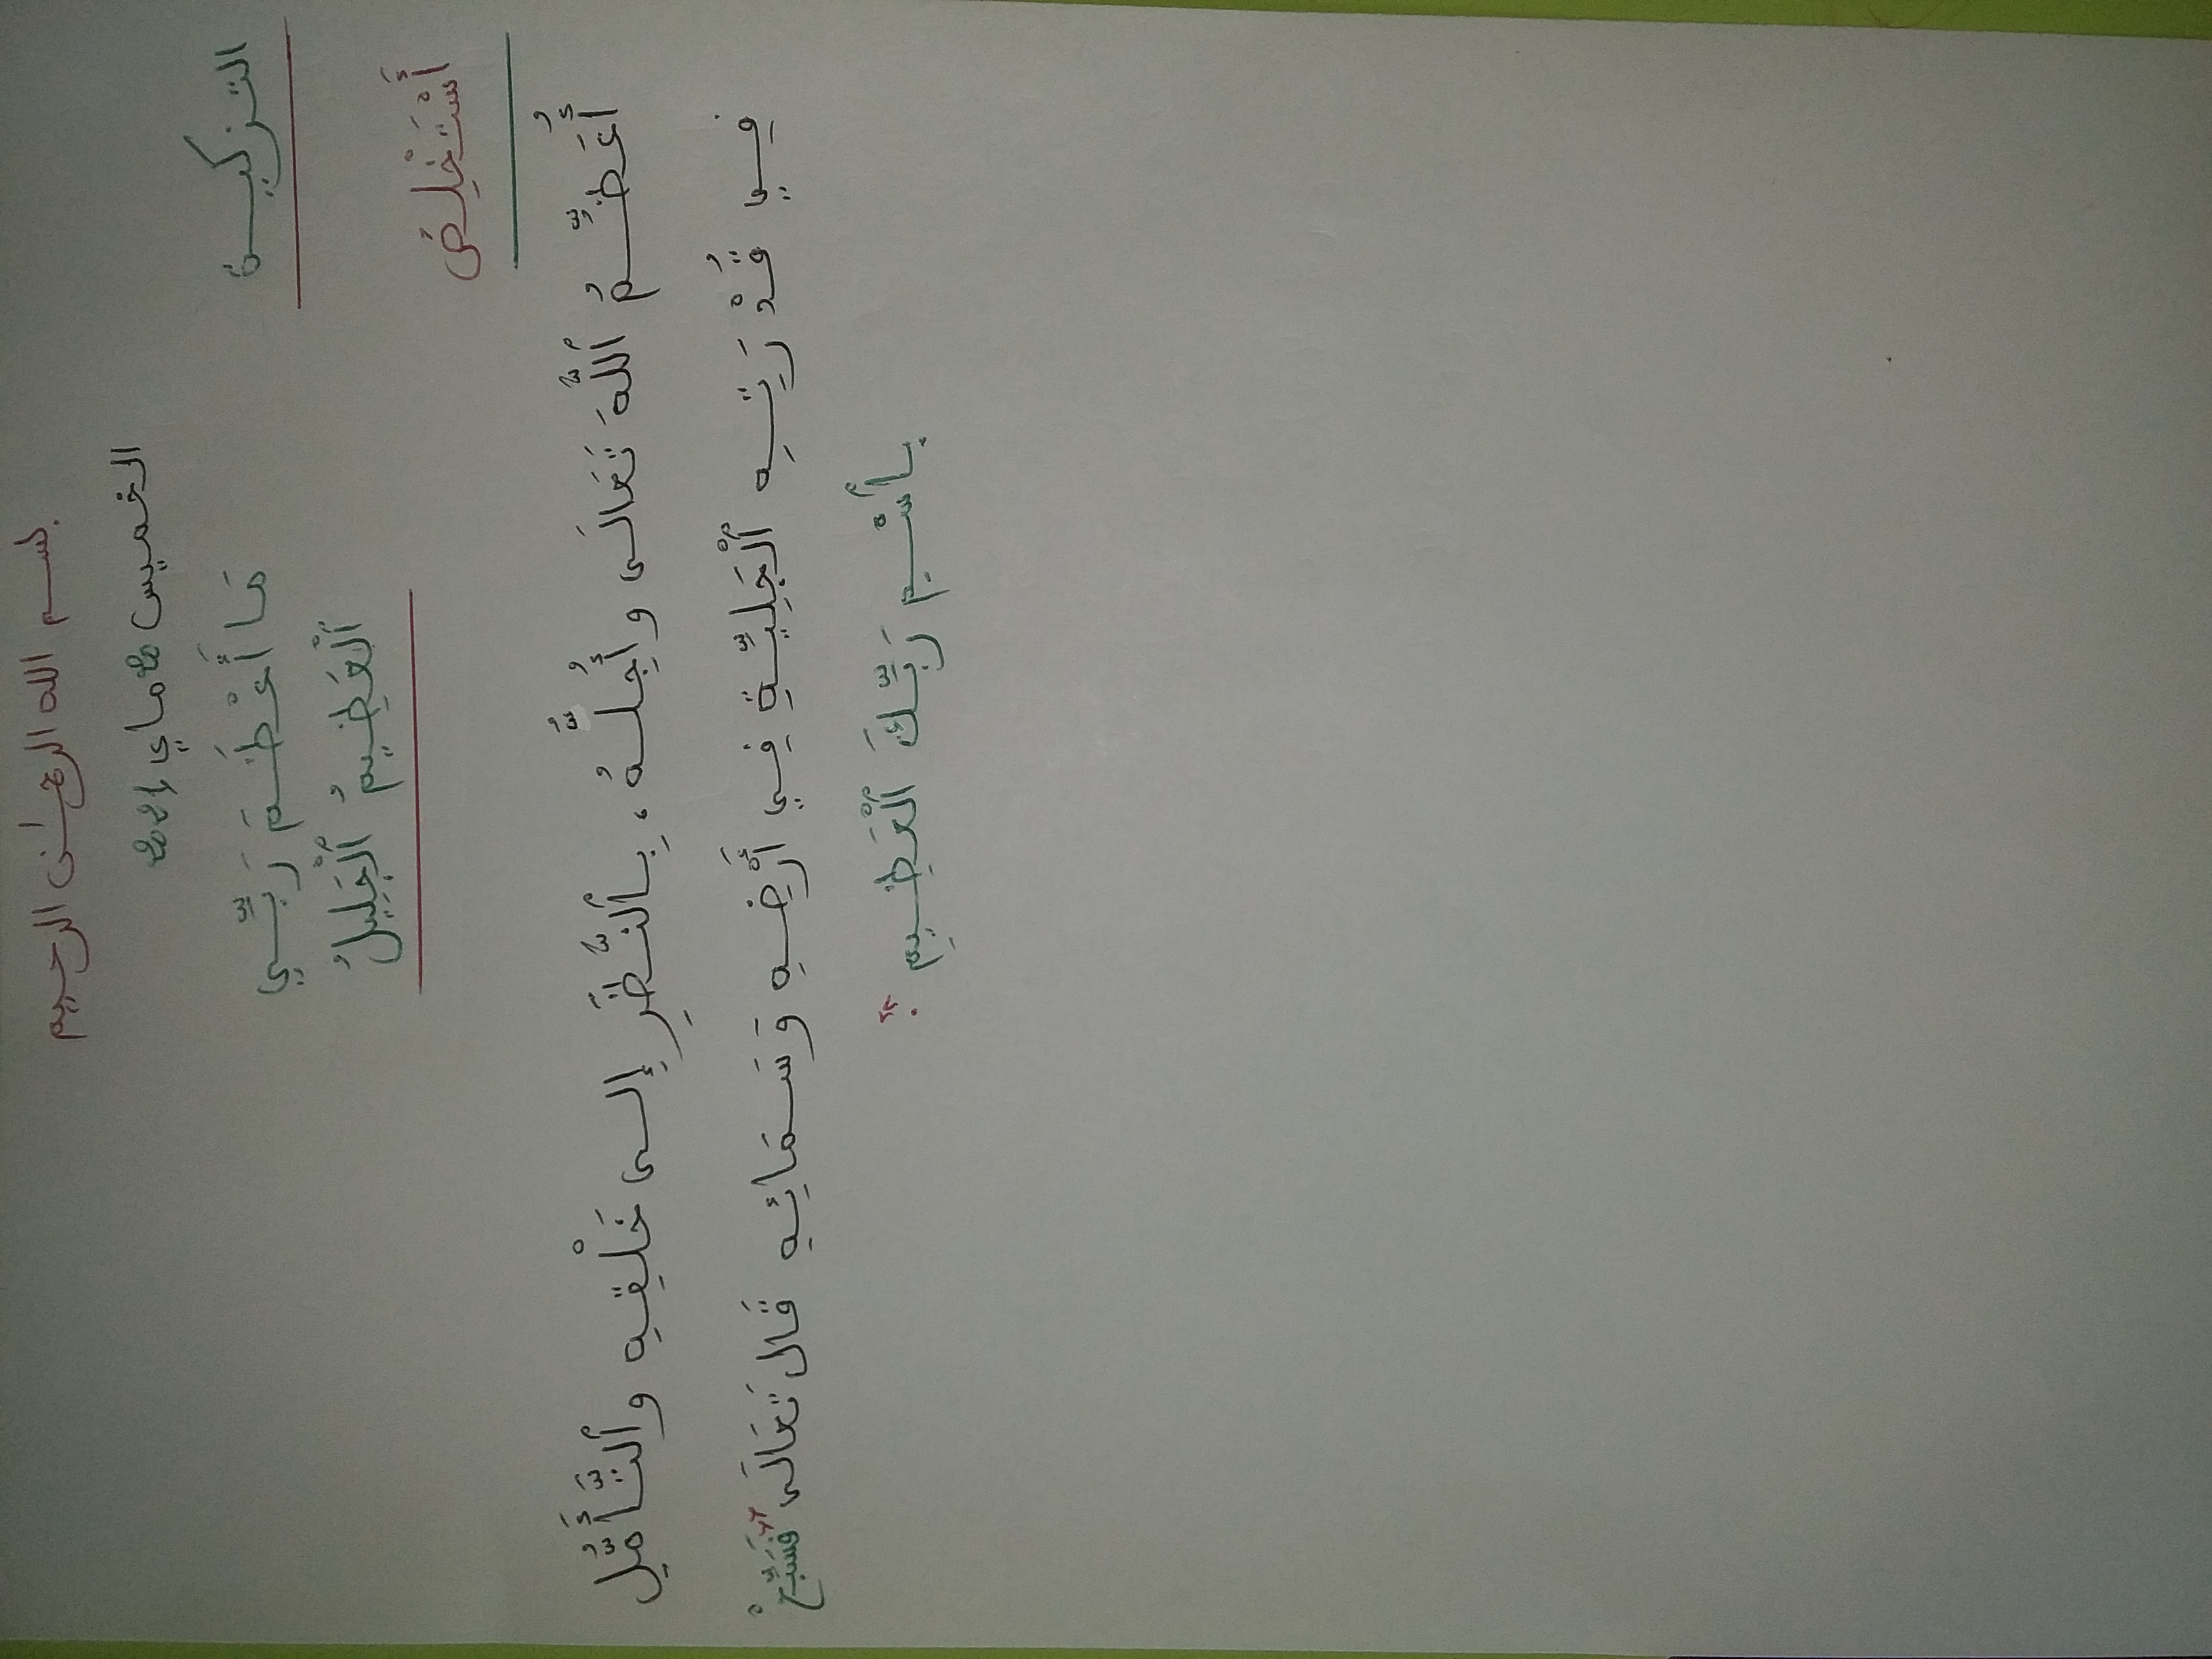 بسم الله الرحمٰن الرحيم
الخميس 20 ماي 2021
التزكية
مَا أَعْظَمَ رَبِّي
ٱلْعَظِيمُ ٱلْجَلِيلُ
أَسْتَخْلِصُ
أُعَظِّمُ ٱللَّهَ تَعَالَى وأُجِلُّهُ، بِٱلنَّظَرِ إِلى خَلْقِهِ وٱلتَّأَمُّلِ
فِي قُدْرَتِهِ ٱلْجَلِيَّةِ فِي أَرْضِهِ وَسَمَائِهِ قَال تَعَالَى "فَسَبِّحْ
بِٱسْمِ رَبِّكَ ٱلْعَظِيمِ".